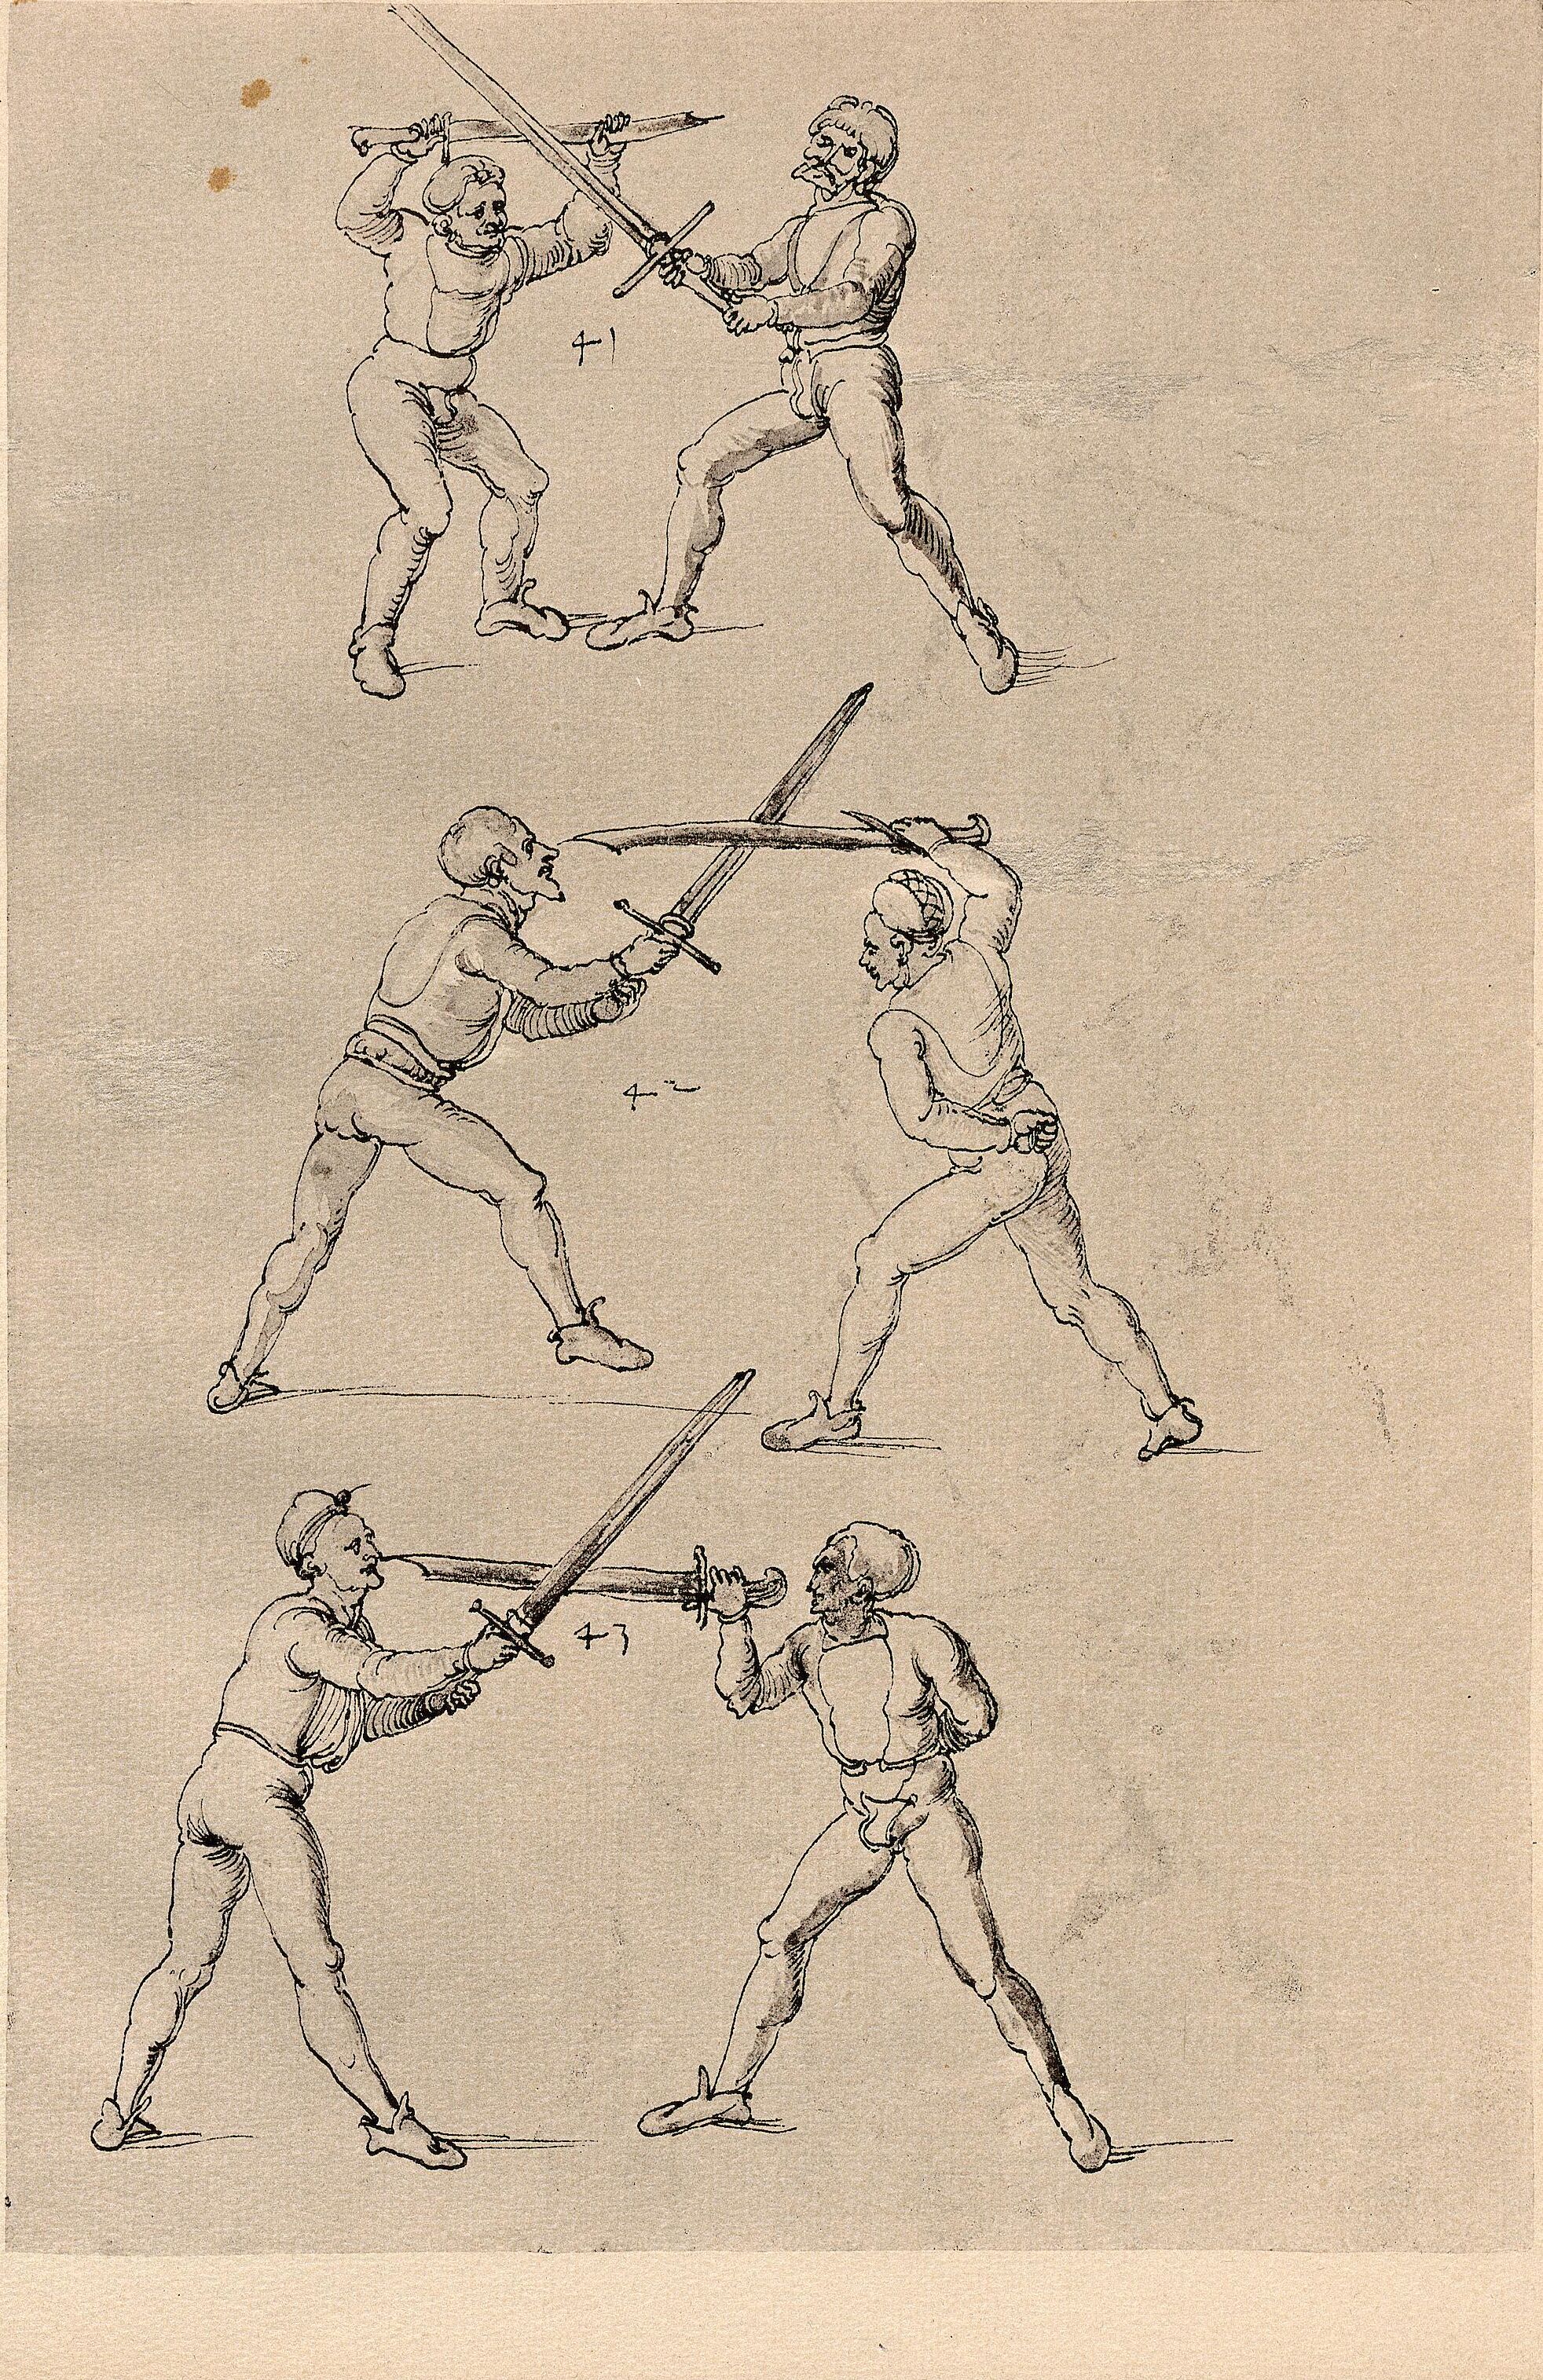 41
42
43